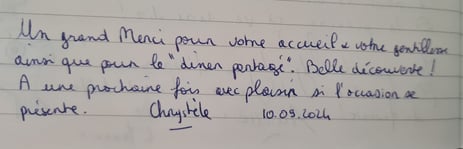 Un grand Merci pour votre accueil & votre gentillesse
ainsi que pour le "diner partagé". Belle découverte !
A une prochaine fois avec plaisir si l'occasion se
présente. Chrystèle 10.09.2024